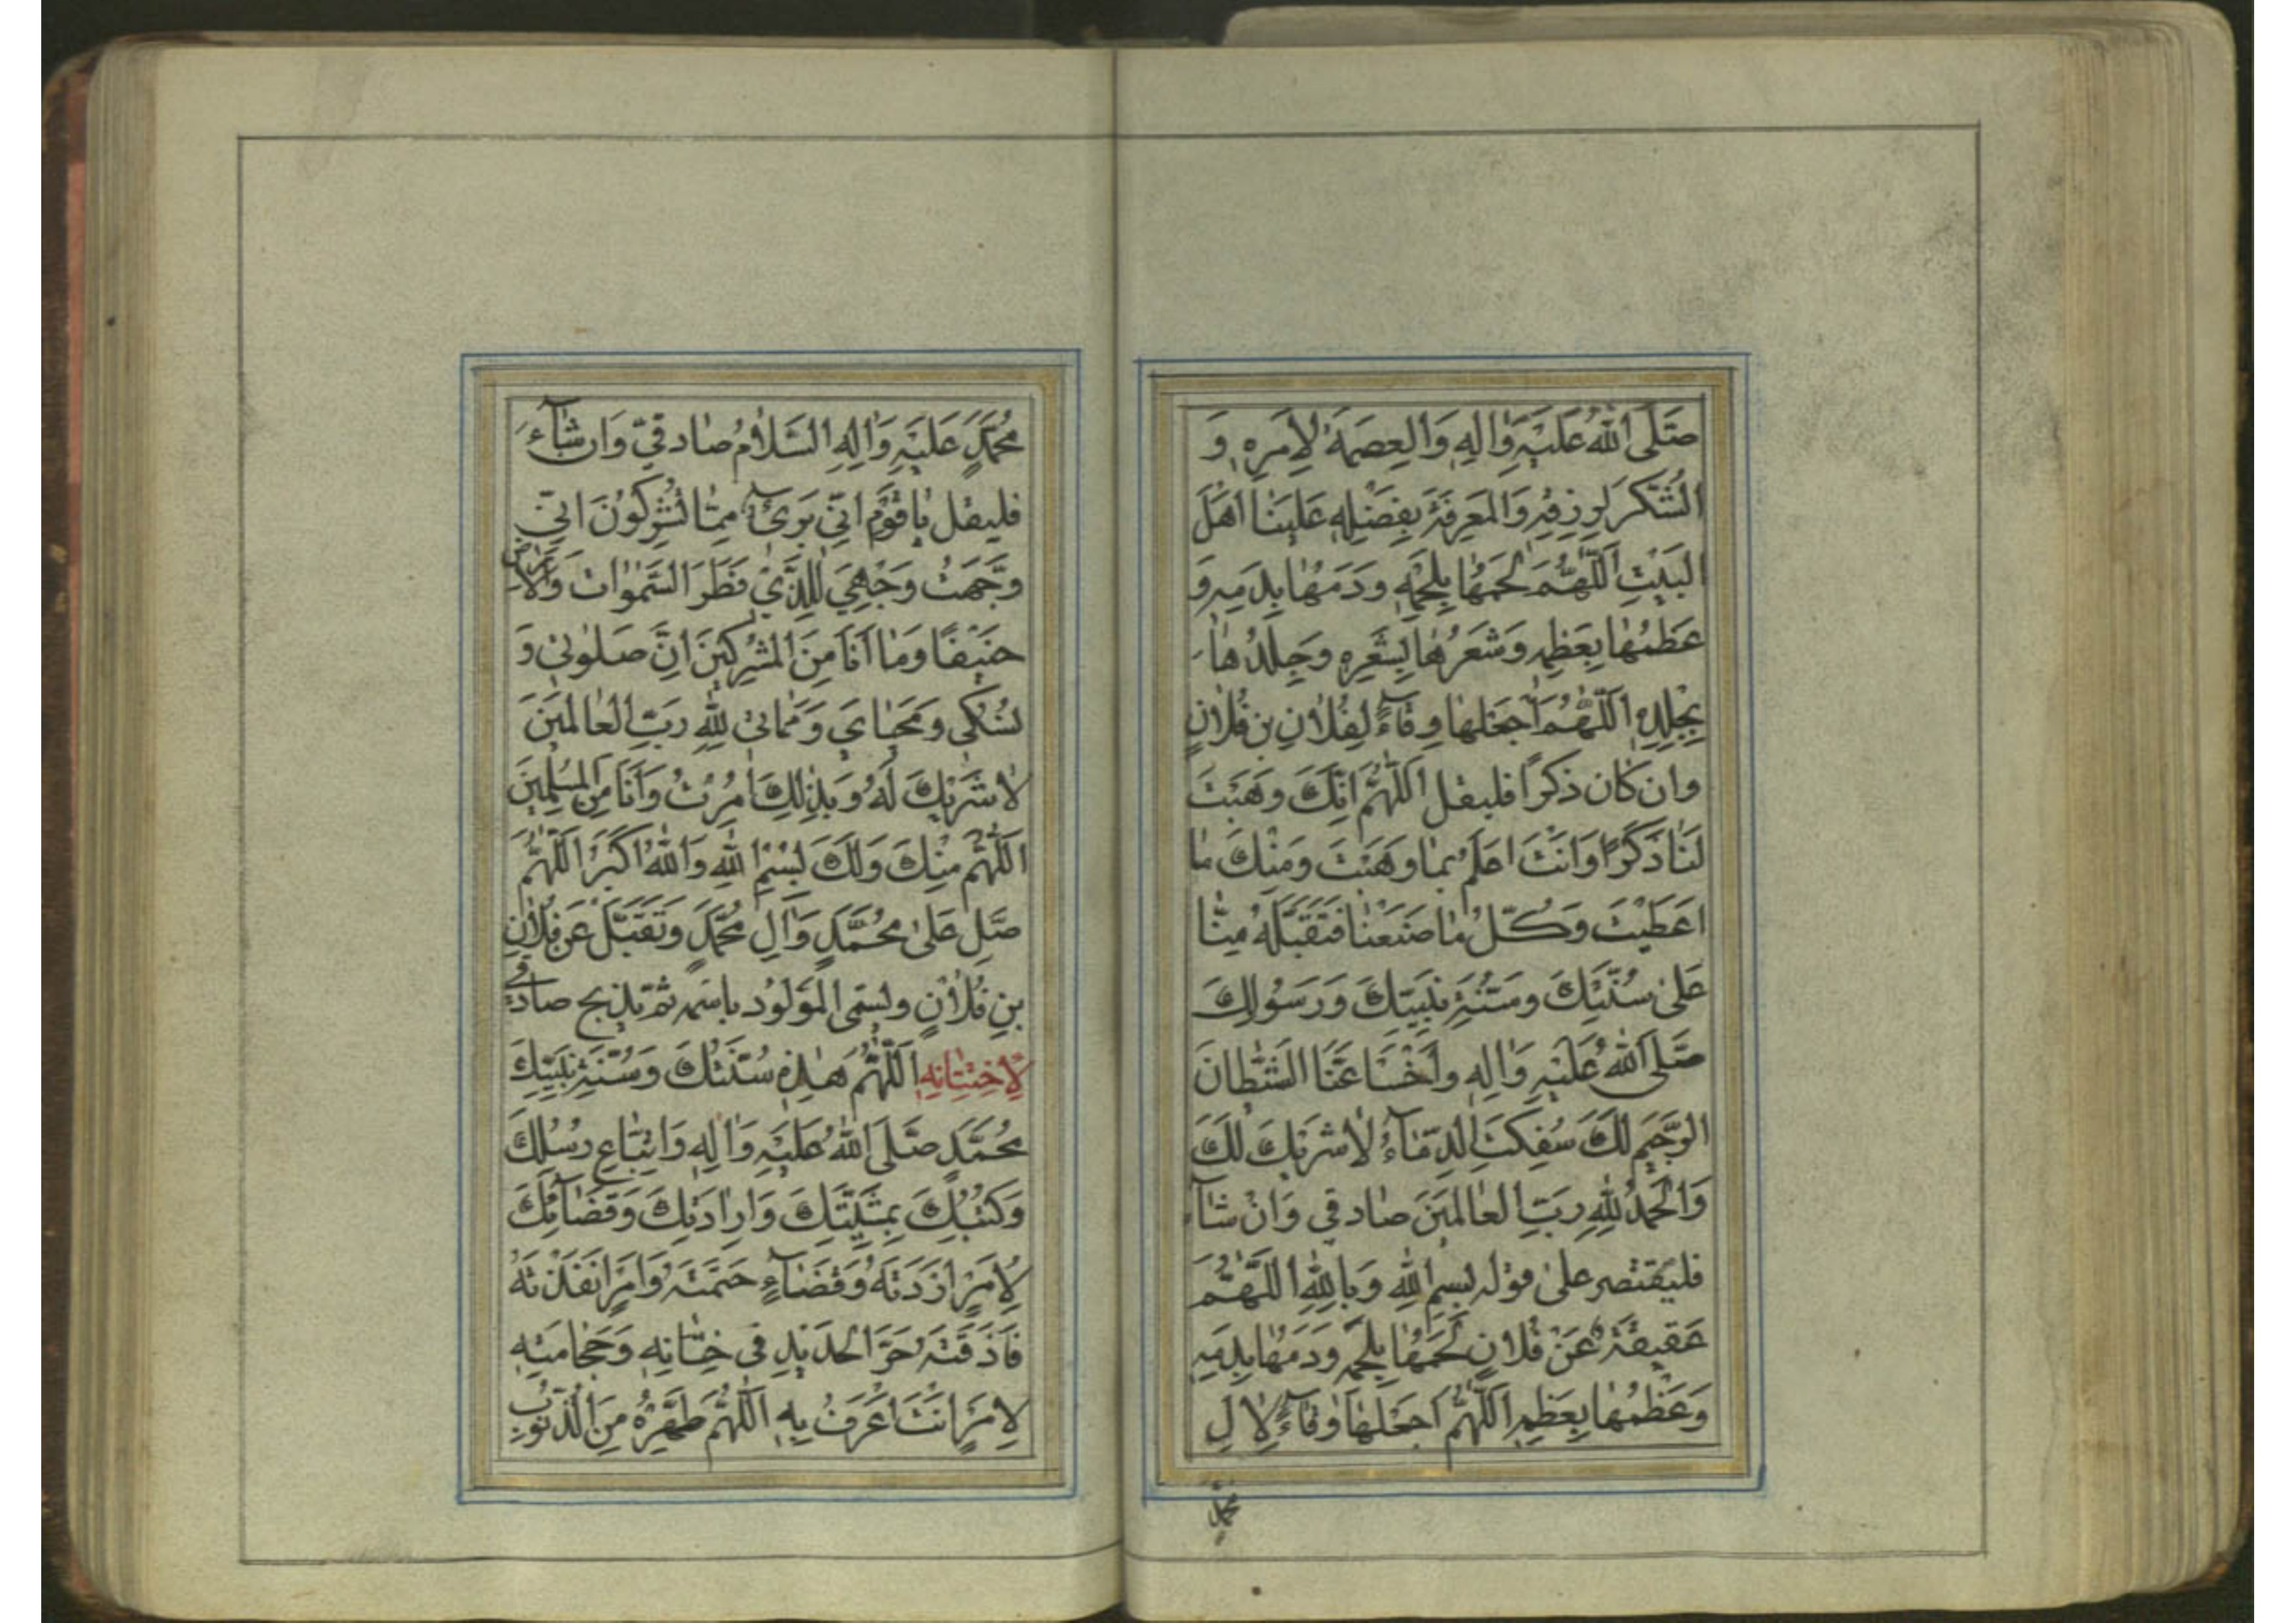 صَلَّى اللهُ عَلَيْهِ وَاٰلِهِ وَالْعِصْمَةُ لِاَمْرِهِ وَ
الشُّكْرَ لِرِزْقِهِ وَالْمَعْرِفَةَ بِفَضْلِهِ عَلَيْنَا اَهْلَ
الْبَيْتِ اَللّٰهُمَّ لَحْمُهَا بِلَحْمِهِ وَدَمُهَا بِدَمِهِ وَ
عَظْمُهَا بِعَظْمِهِ وَشَعْرُهَا بِشَعْرِهِ وَجِلْدُهَا
بِجِلْدِهِ اَللّٰهُمَّ اجْعَلْهَا وِقَاءً لِفُلَانِ بْنِ فُلَانٍ
وان كان ذكراً فليقل اَللّٰهُمَّ اِنَّكَ وَهَبْتَ
لَنَا ذَكَرًا وَاَنْتَ اَعْلَمُ بِمَا وَهَبْتَ وَمِنْكَ مَا
اَعْطَيْتَ وَكُلُّ مَا صَنَعْنَا فَتَقَبَّلْهُ مِنَّا
عَلٰى سُنَّتِكَ وَسُنَّةِ نَبِيِّكَ وَرَسُولِكَ
صَلَّى اللهُ عَلَيْهِ وَاٰلِهِ وَاَخْسَأْ عَنَّا الشَّيْطَانَ
الرَّجِيمَ لَكَ سُفِكَتِ الدِّمَاءُ لَا شَرِيكَ لَكَ
وَالْحَمْدُ لِلّٰهِ رَبِّ الْعَالَمِينَ صادقي وَاِنْ شاء
فليقتصر على قوله بِسْمِ اللهِ وَبِاللهِ اَللّٰهُمَّ
عَقِيقَةٌ عَنْ فُلَانٍ لَحْمُهَا بِلَحْمِهِ وَدَمُهَا بِدَمِهِ
وَعَظْمُهَا بِعَظْمِهِ اَللّٰهُمَّ اجْعَلْهَا وِقَاءً لِاٰلِ
مُحَمَّدٍ
مُحَمَّدٍ عَلَيْهِ وَاٰلِهِ السَّلَامُ صادقيّ وَان شَاءَ
فليقل يَا قَوْمِ اِنِّي بَرِيءٌ مِمَّا تُشْرِكُونَ اِنِّي
وَجَّهْتُ وَجْهِيَ لِلَّذِي فَطَرَ السَّمٰوَاتِ وَالْاَرْضَ
حَنِيفًا وَمَا اَنَا مِنَ الْمُشْرِكِينَ اِنَّ صَلٰوتِي وَ
نُسُكِي وَمَحْيَايَ وَمَمَاتِي لِلّٰهِ رَبِّ الْعَالَمِينَ
لَا شَرِيكَ لَهُ وَبِذٰلِكَ اُمِرْتُ وَاَنَا مِنَ الْمُسْلِمِينَ
اَللّٰهُمَّ مِنْكَ وَلَكَ بِسْمِ اللهِ وَاللهُ اَكْبَرُ اَللّٰهُمَّ
صَلِّ عَلٰى مُحَمَّدٍ وَاٰلِ مُحَمَّدٍ وَتَقَبَّلْ عَنْ فُلَانِ
بْنِ فُلَانٍ ويسمى المولود باسمه ثم يذبح صادقي
لِاخْتِتَانِهِ اَللّٰهُمَّ هٰذِهِ سُنَّتُكَ وَسُنَّةُ نَبِيِّكَ
مُحَمَّدٍ صَلَّى اللهُ عَلَيْهِ وَاٰلِهِ وَاتِّبَاعِ رُسُلِكَ
وَكُتُبِكَ بِمَشِيَّتِكَ وَاِرَادَتِكَ وَقَضَائِكَ
لِاَمْرٍ اَرَدْتَهُ وَقَضَاءٍ حَتَمْتَهُ وَاَمْرٍ اَنْفَذْتَهُ
فَاَذَقْتَهُ حَرَّ الْحَدِيدِ فِي خِتَانِهِ وَحِجَامَتِهِ
لِاَمْرٍ اَنْتَ اَعْرَفُ بِهِ اَللّٰهُمَّ طَهِّرْهُ مِنَ الذُّنُوبِ